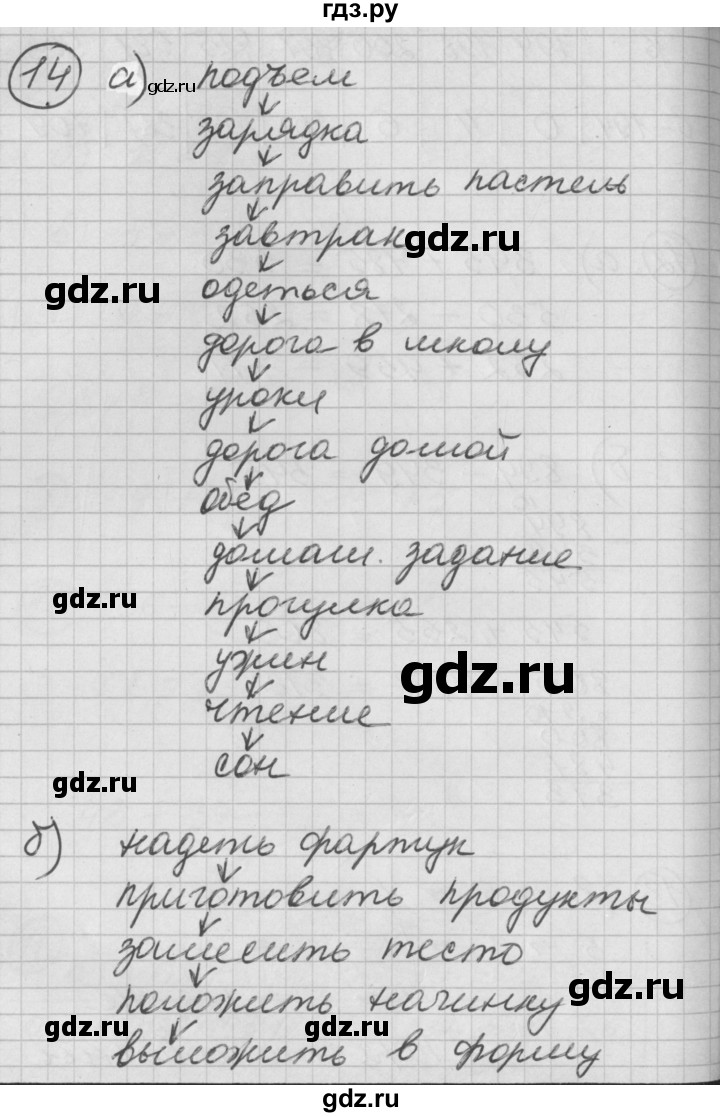 гдз.ру
14 а) gdz.ru подъем
↓
зарядка
↓
заправить пастель
↓
завтрак gdz.ru
↓
gdz.ru одеться
↓
дорога в школу
↓
уроки
↓
дорога домой
↓
обед
↓
домаш. задание
↓
gdz.ru прогулка
↓
ужин gdz.ru
↓
чтение
↓
gdz.ru сон
б) надеть фартук
↓
приготовить продукты
↓
замесить тесто
↓
положить начинку gdz.ru
↓
gdz.ru gdz.ru
выложить в форму
gdz.ru